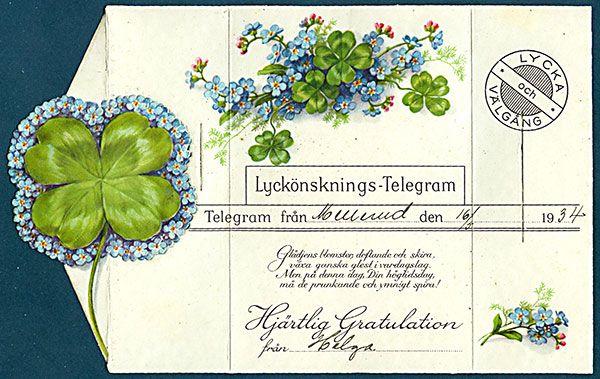 LYCKA
och
VÄLGÅNG
Lyckönsknings-Telegram
Telegram från Mellerud den 1934
Glädjens blomster, doftande och skira,
växa ganska glest i vardagslag.
Men på denna dag, Din högtidsdag,
må de prunkande och ymnigt spira!
Hjärtlig Gratulation
från Helga